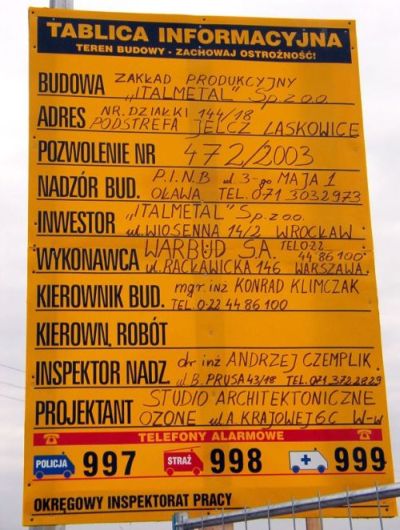 TABLICA INFORMACYJNA
TEREN BUDOWY - ZACHOWAJ OSTROŻNOŚĆ!
BUDOWA ZAKŁAD PRODUKCYJNY
„ITALMETAL" Sp. z o.o.
ADRES NR. DZIAŁKI 144/18
PODSTREFA JELCZ LASKOWICE
POZWOLENIE NR 472/2003
NADZÓR BUD. P.I.N.B ul 3-go MAJA 1
OŁAWA TEL. 071 3032973
INWESTOR „ITALMETAL" Sp. z o.o.
ul. WIOSENNA 14/2 WROCŁAW
WYKONAWCA WARBUD S.A. TEL 022
44 86 100
ul. RACŁAWICKA 146 WARSZAWA
KIEROWNIK BUD. mgr. inż KONRAD KLIMCZAK
TEL. 0-22 44 86 100
KIEROWN. ROBÓT
INSPEKTOR NADZ. dr inż ANDRZEJ CZEMPLIK
ul B. PRUSA 43/18 TEL. 071 3722829
PROJEKTANT STUDIO ARCHITEKTONICZNE
OZONE ul A. KRAJOWEJ 6C W-w
TELEFONY ALARMOWE
POLICJA 997 STRAŻ 998 999
OKRĘGOWY INSPEKTORAT PRACY